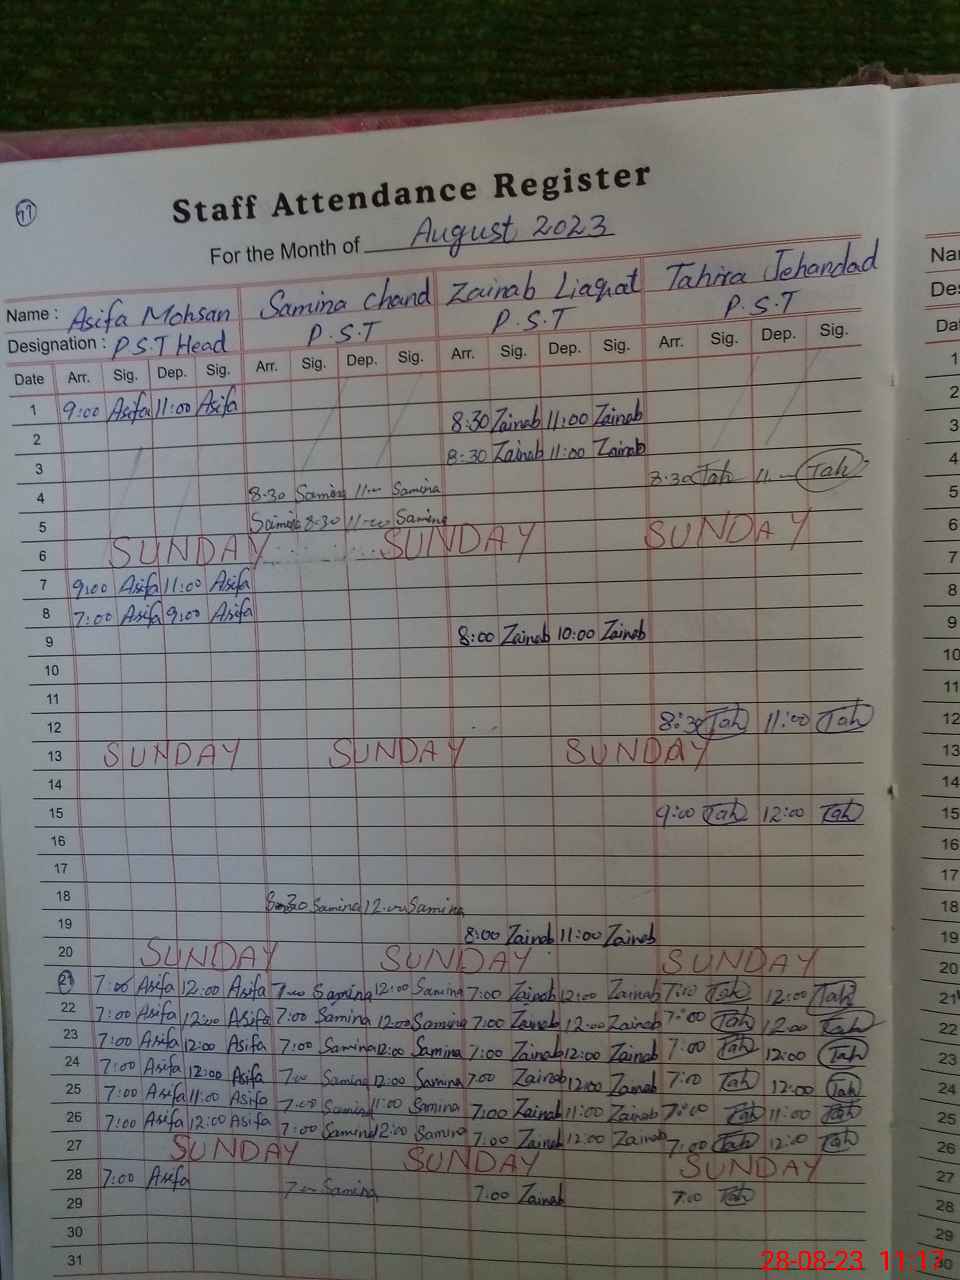 77
Staff Attendance Register
For the Month of August 2023
Name : Asifa Mohsan Samina Chand Zainab Liaqat Tahira Jehandad
Designation : P.S.T Head P.S.T P.S.T P.S.T
Date Arr. Sig. Dep. Sig. Arr. Sig. Dep. Sig. Arr. Sig. Dep. Sig. Arr. Sig. Dep. Sig.
1 9:00 Asifa 11:00 Asifa
2 8:30 Zainab 11:00 Zainab
3 8:30 Zainab 11:00 Zainab
4 8:30 Samina 11:00 Samina 8:30 Tah 11:00 Tah
5 Samina 8:30 11:00 Samina
6 SUNDAY SUNDAY SUNDAY
7 9:00 Asifa 11:00 Asifa
8 7:00 Asifa 9:00 Asifa
9 8:00 Zainab 10:00 Zainab
10
11
12 8:30 Tah 11:00 Tah
13 SUNDAY SUNDAY SUNDAY
14
15 9:00 Tah 12:00 Tah
16
17
18 8:30 Samina 12:00 Samina
19 8:00 Zainab 11:00 Zainab
20 SUNDAY SUNDAY SUNDAY
21 7:00 Asifa 12:00 Asifa 7:00 Samina 12:00 Samina 7:00 Zainab 12:00 Zainab 7:00 Tah 12:00 Tah
22 7:00 Asifa 12:00 Asifa 7:00 Samina 12:00 Samina 7:00 Zainab 12:00 Zainab 7:00 Tah 12:00 Tah
23 7:00 Asifa 12:00 Asifa 7:00 Samina 12:00 Samina 7:00 Zainab 12:00 Zainab 7:00 Tah 12:00 Tah
24 7:00 Asifa 12:00 Asifa 7:00 Samina 12:00 Samina 7:00 Zainab 12:00 Zainab 7:00 Tah 12:00 Tah
25 7:00 Asifa 11:00 Asifa 7:00 Samina 11:00 Samina 7:00 Zainab 11:00 Zainab 7:00 Tah 11:00 Tah
26 7:00 Asifa 12:00 Asifa 7:00 Samina 12:00 Samina 7:00 Zainab 12:00 Zainab 7:00 Tah 12:00 Tah
27 SUNDAY SUNDAY SUNDAY
28 7:00 Asifa 7:00 Samina 7:00 Zainab 7:00 Tah
29
30
31
Na
Des
Da
1
2
3
4
5
6
7
8
9
10
11
12
13
14
15
16
17
18
19
20
21
22
23
24
25
26
27
28
29
30
28-08-23 11:17